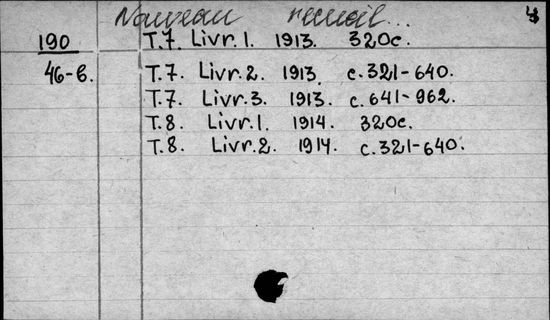 Nouveau recueil... 4
190 T.7. Livr.1. 1913. 320c.
46-6. T.7. Livr.2. 1913. c.321-640.
T.7. Livr.3. 1913. c.641-962.
T.8. Livr.1. 1914. 320c.
T.8. Livr.2. 1914. c.321-640.